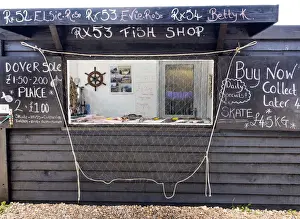 Rx52 Elsie.Rose Rx53 Evie.Rose Rx54 Betty K
RX53 FISH SHOP
DOVER SOLE
£1.50-200
PLAICE
2-£1.00
Buy Now
Collect
Later
Daily
Specials
SKATE
£4.5KG